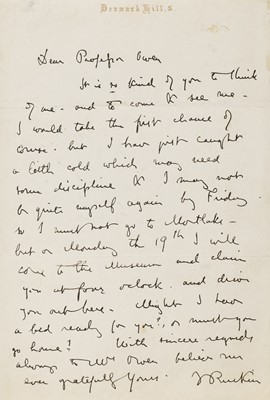 Denmark Hill, S.
Dear Professor Owen
It is so kind of you to think
of me - and to come to see me -
I would take the first chance of
course. but I have just caught
a little cold which may need
some discipline & I may not
be quite myself again by Friday
so I must not go to Mortlake -
but on Monday the 19th I will
come to the Museum and claim
you at four oclock. and drive
you out here. Might I have
a bed ready for you?, or must you
go home? With sincere regards
always to Mrs Owen believe me
ever gratefully Yours. J Ruskin